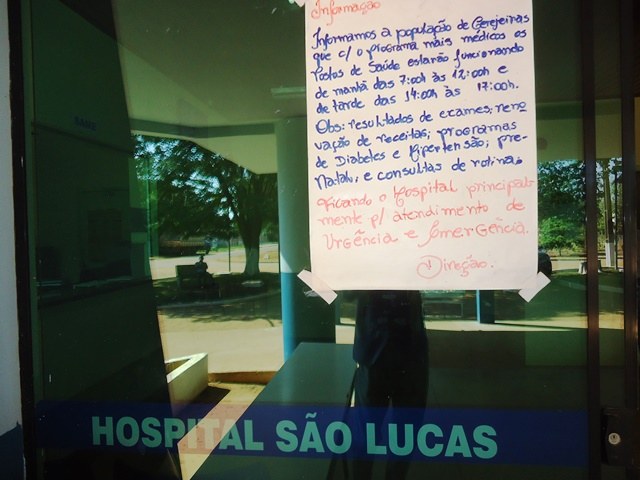 Informação
Informamos a população de Cerejeiras
que c/ o programa mais médicos os
Postos de Saúde estarão funcionando
de manhã das 7:00h às 12:00h e
de tarde das 14:00h às 17:00h.
Obs: resultados de exames; reno-
vação de receitas; programas
de Diabetes e Hipertensão; pre-
Natal; e consultas de rotina.
Ficando o Hospital principal-
mente p/ atendimento de
Urgência e Emergência.
Direção.
HOSPITAL SÃO LUCAS